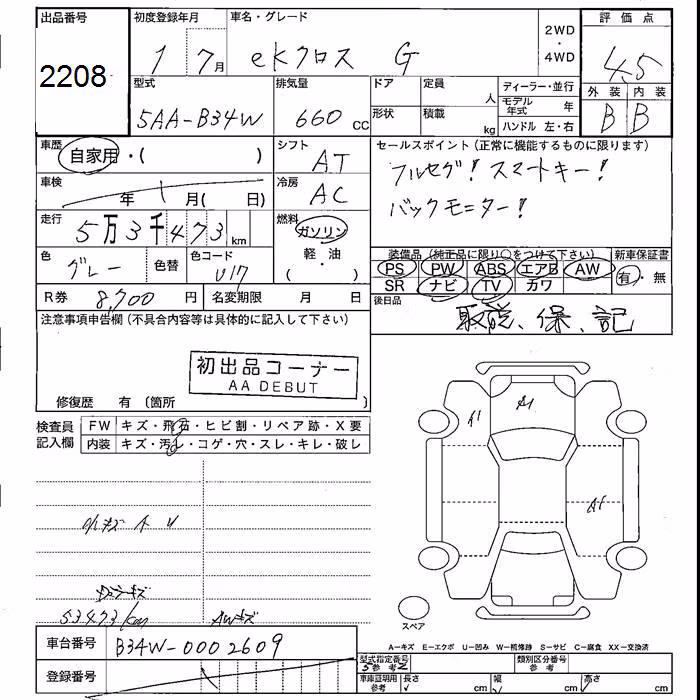 出品番号 初度登録年月 車名・グレード 評価点
2208 1 7月 eKクロス G 2WD・4WD 4.5
型式 排気量 ドア 定員 人 ディーラー・並行 外装 内装
5AA-B34W 660 CC 形状 積載 kg モデル年式 年 B B
ハンドル 左・右
車歴 自家用・( ) シフト AT セールスポイント(正常に機能するものに限ります)
車検 年 月( 日) 冷房 AC フルセグ! スマートキー!
バックモニター!
走行 5万3千473km 燃料 ガソリン 軽・油 ( )
色 グレー 色替 色コード U17 装備品(純正品に限り○をつけて下さい) 新車保証書
PS PW ABS エアB AW 有・無
SR ナビ TV カワ
R券 8,700円 名変期限 月 日 後日品
取説、保、記
注意事項申告欄(不具合内容等は具体的に記入して下さい)
初出品コーナー
AA DEBUT
修復歴 有(箇所 )
検査員記入欄 FW キズ・飛石・ヒビ割・リペア跡・X要
内装 キズ・汚レ・コゲ・穴・スレ・キレ・破レ
A1 A1
A1
小キズ
53473km AWキズ
スペア
A−キズ E−エクボ U−凹み W−補修跡 S−サビ C−腐食 XX−交換済
車台番号 B34W-0002609
登録番号
型式指定番号 参考 類別区分番号 参考
車庫証明用参考 長さ cm 幅 cm 高さ cm